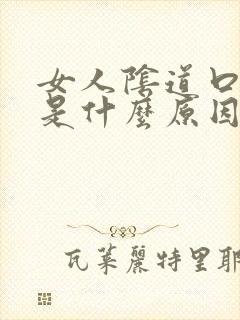 女人陰道口
是什麼原因
瓦萊麗特里耶